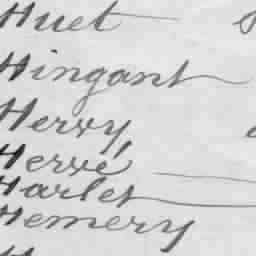 Huet
Hingant
Hervy
Hervé
Harlet
Hemery